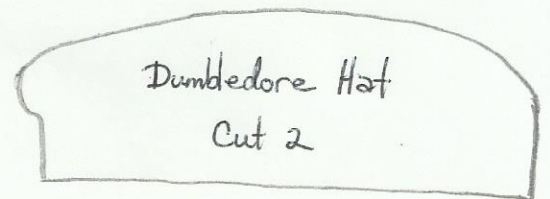 Dumbledore Hat
Cut 2